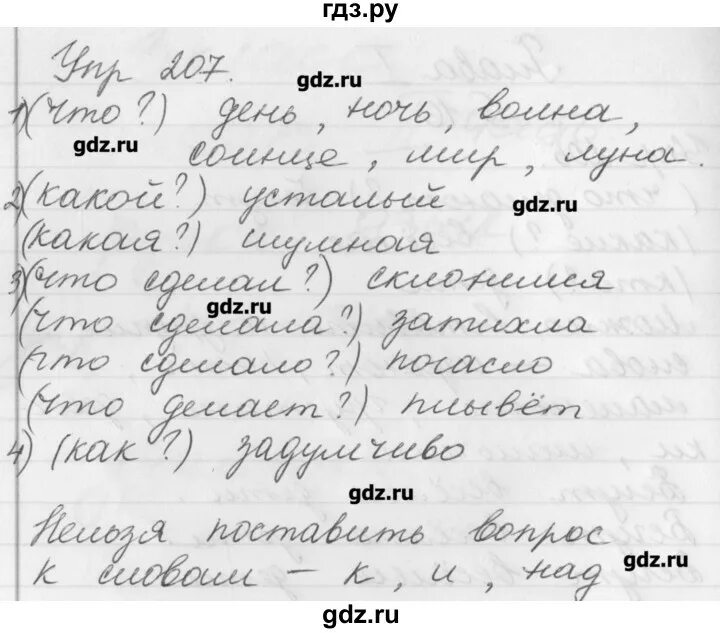 гдз.ру
Упр 207.
gdz.ru
1)(что?) день, ночь, волна,
gdz.ru
солнце, мир, луна.
2(какой?) усталый
gdz.ru
(какая?) шумная
3)(что сделал?) склонился
gdz.ru
(что сделала?) затихла
(что сделало?) погасло
(что делает?) плывёт
4) (как?) задумчиво
gdz.ru
Нельзя поставить вопрос
к словам – к, и, над
gdz.ru
gdz.ru